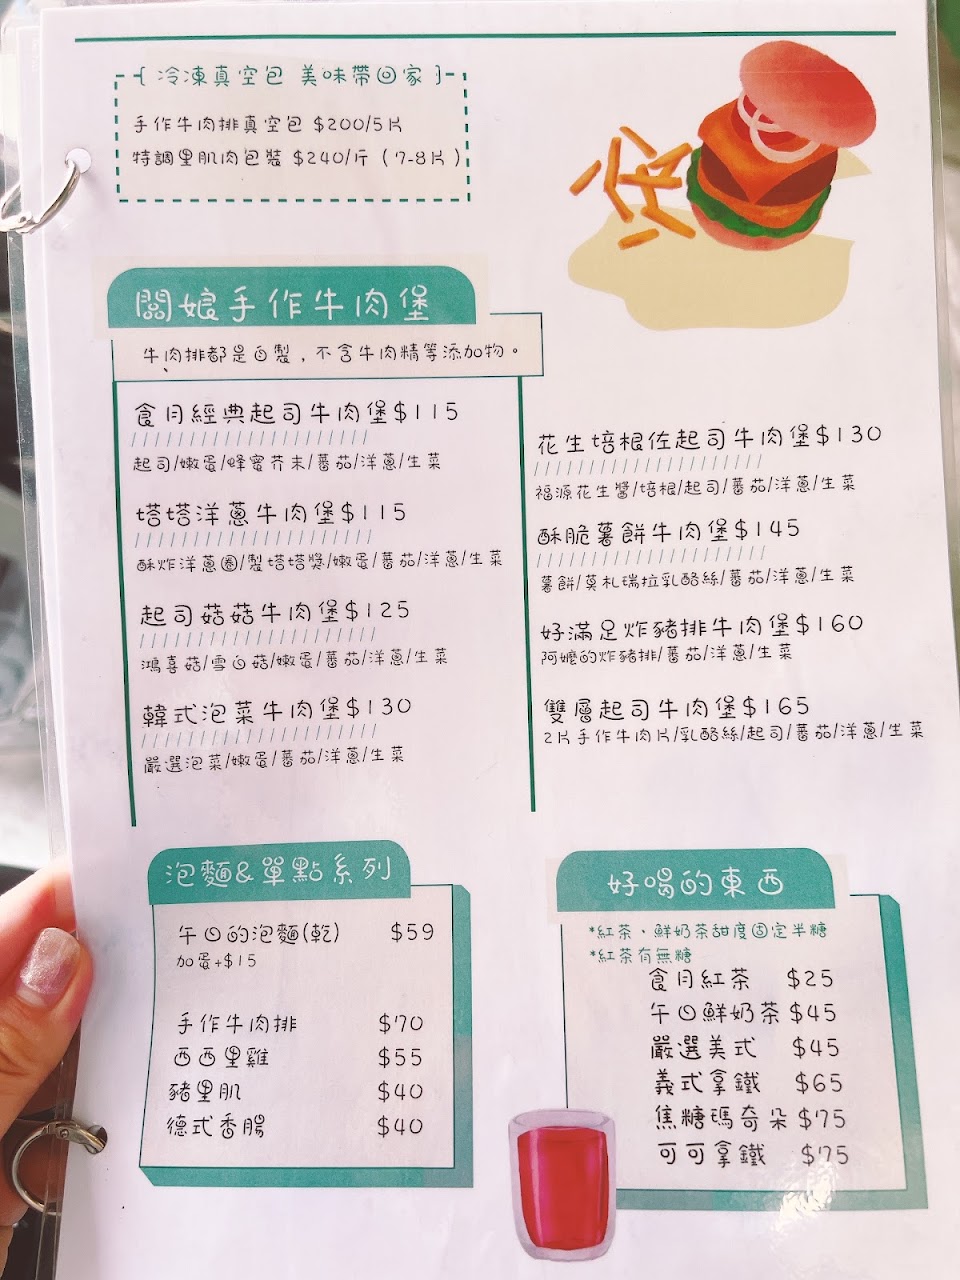 { 冷凍真空包 美味帶回家 }
手作牛肉排真空包 $200/5片
特調里肌肉包裝 $240/斤 ( 7-8片 )
闆娘手作牛肉堡
牛肉排都是自製，不含牛肉精等添加物。
食月經典起司牛肉堡$115
起司/嫩蛋/蜂蜜芥末/蕃茄/洋蔥/生菜
塔塔洋蔥牛肉堡$115
酥炸洋蔥圈/製塔塔獎/嫩蛋/蕃茄/洋蔥/生菜
起司菇菇牛肉堡$125
鴻喜菇/雪白菇/嫩蛋/蕃茄/洋蔥/生菜
韓式泡菜牛肉堡$130
嚴選泡菜/嫩蛋/蕃茄/洋蔥/生菜
花生培根佐起司牛肉堡$130
福源花生醬/培根/起司/蕃茄/洋蔥/生菜
酥脆薯餅牛肉堡$145
薯餅/莫札瑞拉乳酪絲/蕃茄/洋蔥/生菜
好滿足炸豬排牛肉堡$160
阿嬤的炸豬排/蕃茄/洋蔥/生菜
雙層起司牛肉堡$165
2片手作牛肉片/乳酪絲/起司/蕃茄/洋蔥/生菜
泡麵&單點系列
午日的泡麵(乾) $59
加蛋+$15
手作牛肉排 $70
西西里雞 $55
豬里肌 $40
德式香腸 $40
好喝的東西
*紅茶、鮮奶茶甜度固定半糖
*紅茶有無糖
食月紅茶 $25
午日鮮奶茶 $45
嚴選美式 $45
義式拿鐵 $65
焦糖瑪奇朵 $75
可可拿鐵 $75